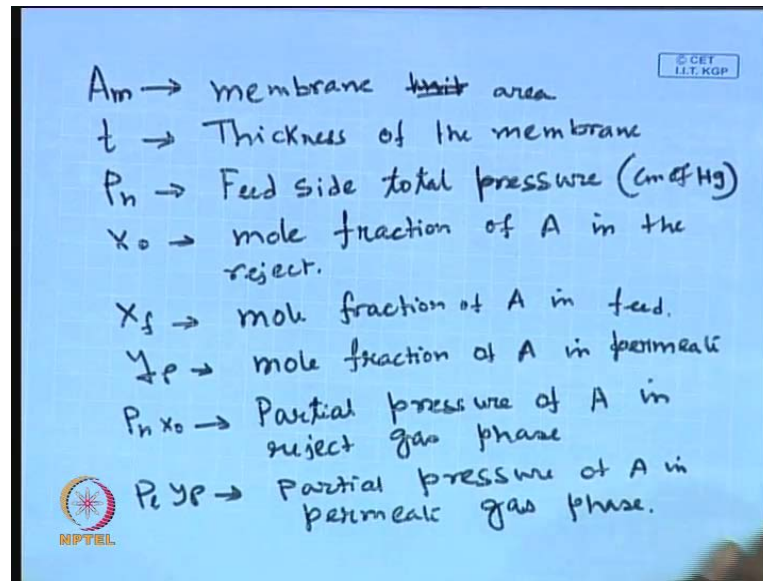 © CET
I.I.T. KGP
Am → membrane area
t → Thickness of the membrane
Pn → Feed side total pressure (Cm of Hg)
x0 → mole fraction of A in the
reject.
xf → mole fraction of A in feed.
yp → mole fraction of A in permeate
Pn x0 → Partial pressure of A in
reject gas phase
Pl yp → partial pressure of A in
permeate gas phase.
NPTEL